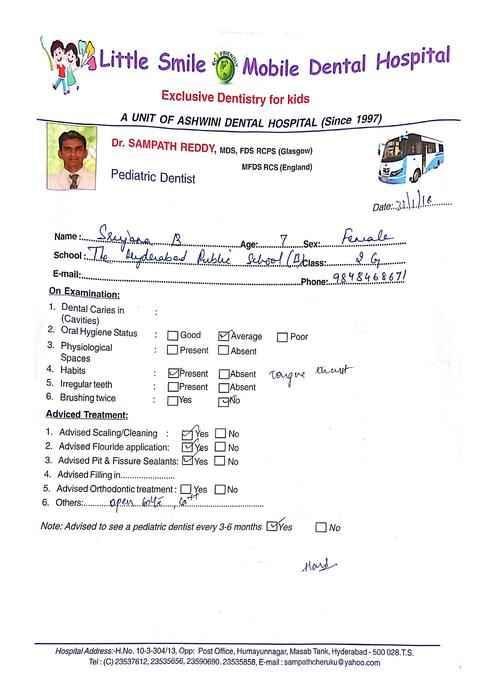 Little Smile ECO FRIENDLY Mobile Dental Hospital
Exclusive Dentistry for kids
A UNIT OF ASHWINI DENTAL HOSPITAL (Since 1997)
Dr. SAMPATH REDDY, MDS, FDS RCPS (Glasgow)
MFDS RCS (England)
Pediatric Dentist
Date:
Name : B Age: 7 Sex: Female
School: The Hyderabad Public School (B) Class: 2 G
E-mail: Phone: 9848468671
On Examination:
1. Dental Caries in (Cavities) :
2. Oral Hygiene Status : Good Average Poor
3. Physiological Spaces : Present Absent
4. Habits : Present Absent tongue thrust
5. Irregular teeth : Present Absent
6. Brushing twice : Yes No
Adviced Treatment:
1. Advised Scaling/Cleaning : Yes No
2. Advised Flouride application: Yes No
3. Advised Pit & Fissure Sealants: Yes No
4. Advised Filling in
5. Advised Orthodontic treatment : Yes No
6. Others: open bite,
Note: Advised to see a pediatric dentist every 3-6 months Yes No
Hospital Address:-H.No. 10-3-304/13, Opp: Post Office, Humayunnagar, Masab Tank, Hyderabad - 500 028.T.S.
Tel : (C) 23537612, 23535656, 23590690. 23535858, E-mail : sampathcheruku@yahoo.com